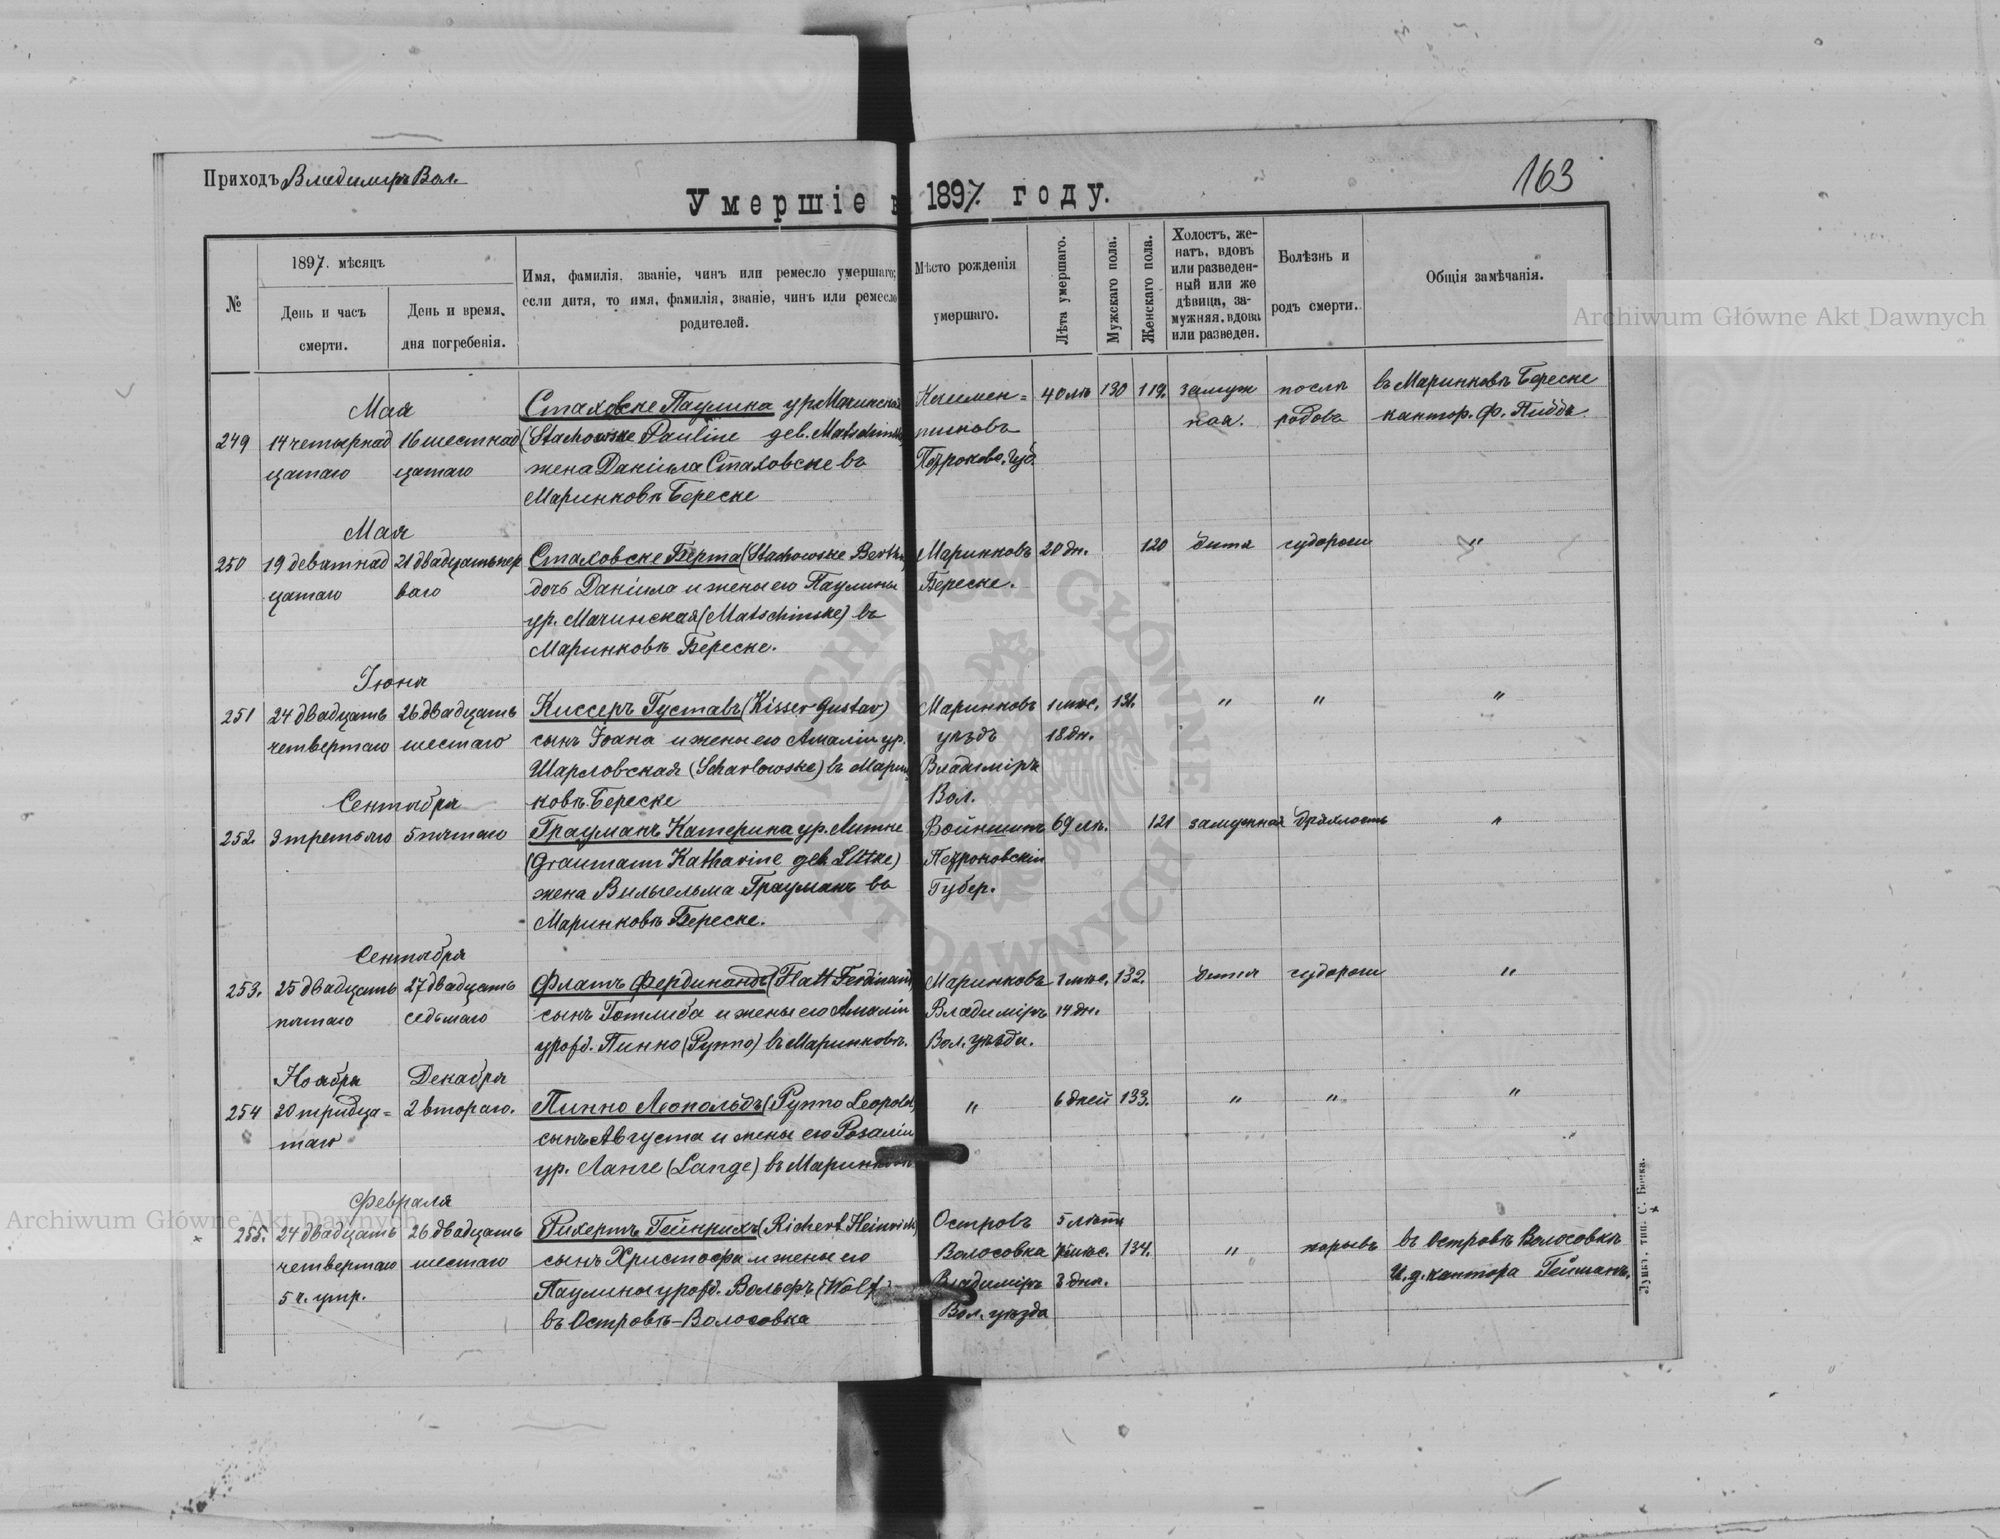 Приходъ Владимиръ Вол.
163
Умершіе в 1897. году.
№
1897. мѣсяцъ
День и часъ смерти.
День и время, дня погребенія.
Имя, фамилія, званіе, чинъ или ремесло умершаго;
если дитя, то имя, фамилія, званіе, чинъ или ремесло
родителей.
Мѣсто рожденія
умершаго.
Лѣта умершаго.
Мужскаго пола.
Женскаго пола.
Холостъ, же-
натъ, вдовъ
или разведен-
ный или же
дѣвица, за-
мужняя, вдова
или разведен.
Болѣзнь и
родъ смерти.
Общія замѣчанія.
Archiwum Główne Akt Dawnych
Мая
249
14 четырнад
цатаго
16 шестнад
цатаго
Стаховске Паулина ур. Мачинская
(Stachowske Pauline geb. Matschinske
жена Даніила Стаховске въ
Маринковѣ Береске
Петроков. Губ.
40 лѣ
130
119.
замуж
ная.
послѣ
родовъ
въ Маринковѣ Береске
кантор. Ф. Пиддъ
Мая
250
19 девятнад
цатаго
21 двадцатьпер
ваго
Стаховске Берта (Stachowske Bertha
дочь Даніила и жены его Паулины
ур. Мачинская (Matschinske) въ
Маринковѣ Береске.
Маринковъ
Береске.
20 дн.
120
дитя
судороги
"
Іюня
251
24 двадцать
четвертаго
26 двадцать
шестаго
Киссеръ Густавъ (Kisser Gustav)
сынъ Іоана и жены его Амаліи ур.
Шарловская (Scharlowske) въ Марин
ковѣ Береске
Маринковъ
уѣздъ
Владиміръ
Вол.
1 мѣс.
18 дн.
131.
"
"
"
Сентября
252.
3 третьяго
5 пятаго
Грауманъ Катерина ур. Литке
(Graumann Katharine geb. Littke)
жена Вильгельма Грауманъ въ
Маринковѣ Береске.
Петроковскій
Губер.
69 лѣ.
121
замужная
дряхлость
"
Сентября
253.
25 двадцать
пятаго
27 двадцать
седьмаго
Флатъ Фердинандъ (Flatt Ferdinand
сынъ Готлиба и жены его Амаліи
урожд. Пинно (Pynno) въ Маринковѣ.
Маринковъ
Владиміръ
Вол. уѣзда.
1 мѣс.
14 дн.
132.
дитя
судороги
"
Ноября
Декабря
254
30 тридца=
таго
2 втораго.
Пинно Леопольдъ (Pynno Leopold
сынъ Августа и жены его Розаліи
ур. Ланге (Lange) въ Маринковѣ
"
6 дней
133.
"
"
"
Февраля
255.
24 двадцать
четвертаго
5 ч. утр.
26 двадцать
шестаго
Рихертъ Гейнрихъ (Richert Heinrich)
сынъ Христофа и жены его
Паулины урожд. Вольфъ (Wolf)
въ Островѣ-Волосовка
Островъ
Волосовка
Владиміръ
Вол. уѣзда
5 лѣтъ
3 дня.
134.
"
нарывъ
въ Островѣ Волосовкѣ
И. д. кантора Гейманъ.
Луцкъ, тип. С. Бонка.
Archiwum Główne Akt Dawnych
ARCHIWUM GŁÓWNE AKT DAWNYCH